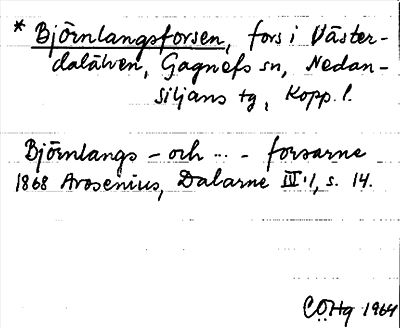 * Björnlangsforsen, fors i Väster-
dalälven, Gagnefs sn, Nedan-
siljans tg, Kopp. l.
Björnlangs - och ... - forsarne
1868 Arosenius, Dalarne III:1, s. 14.
CÖHg 1964